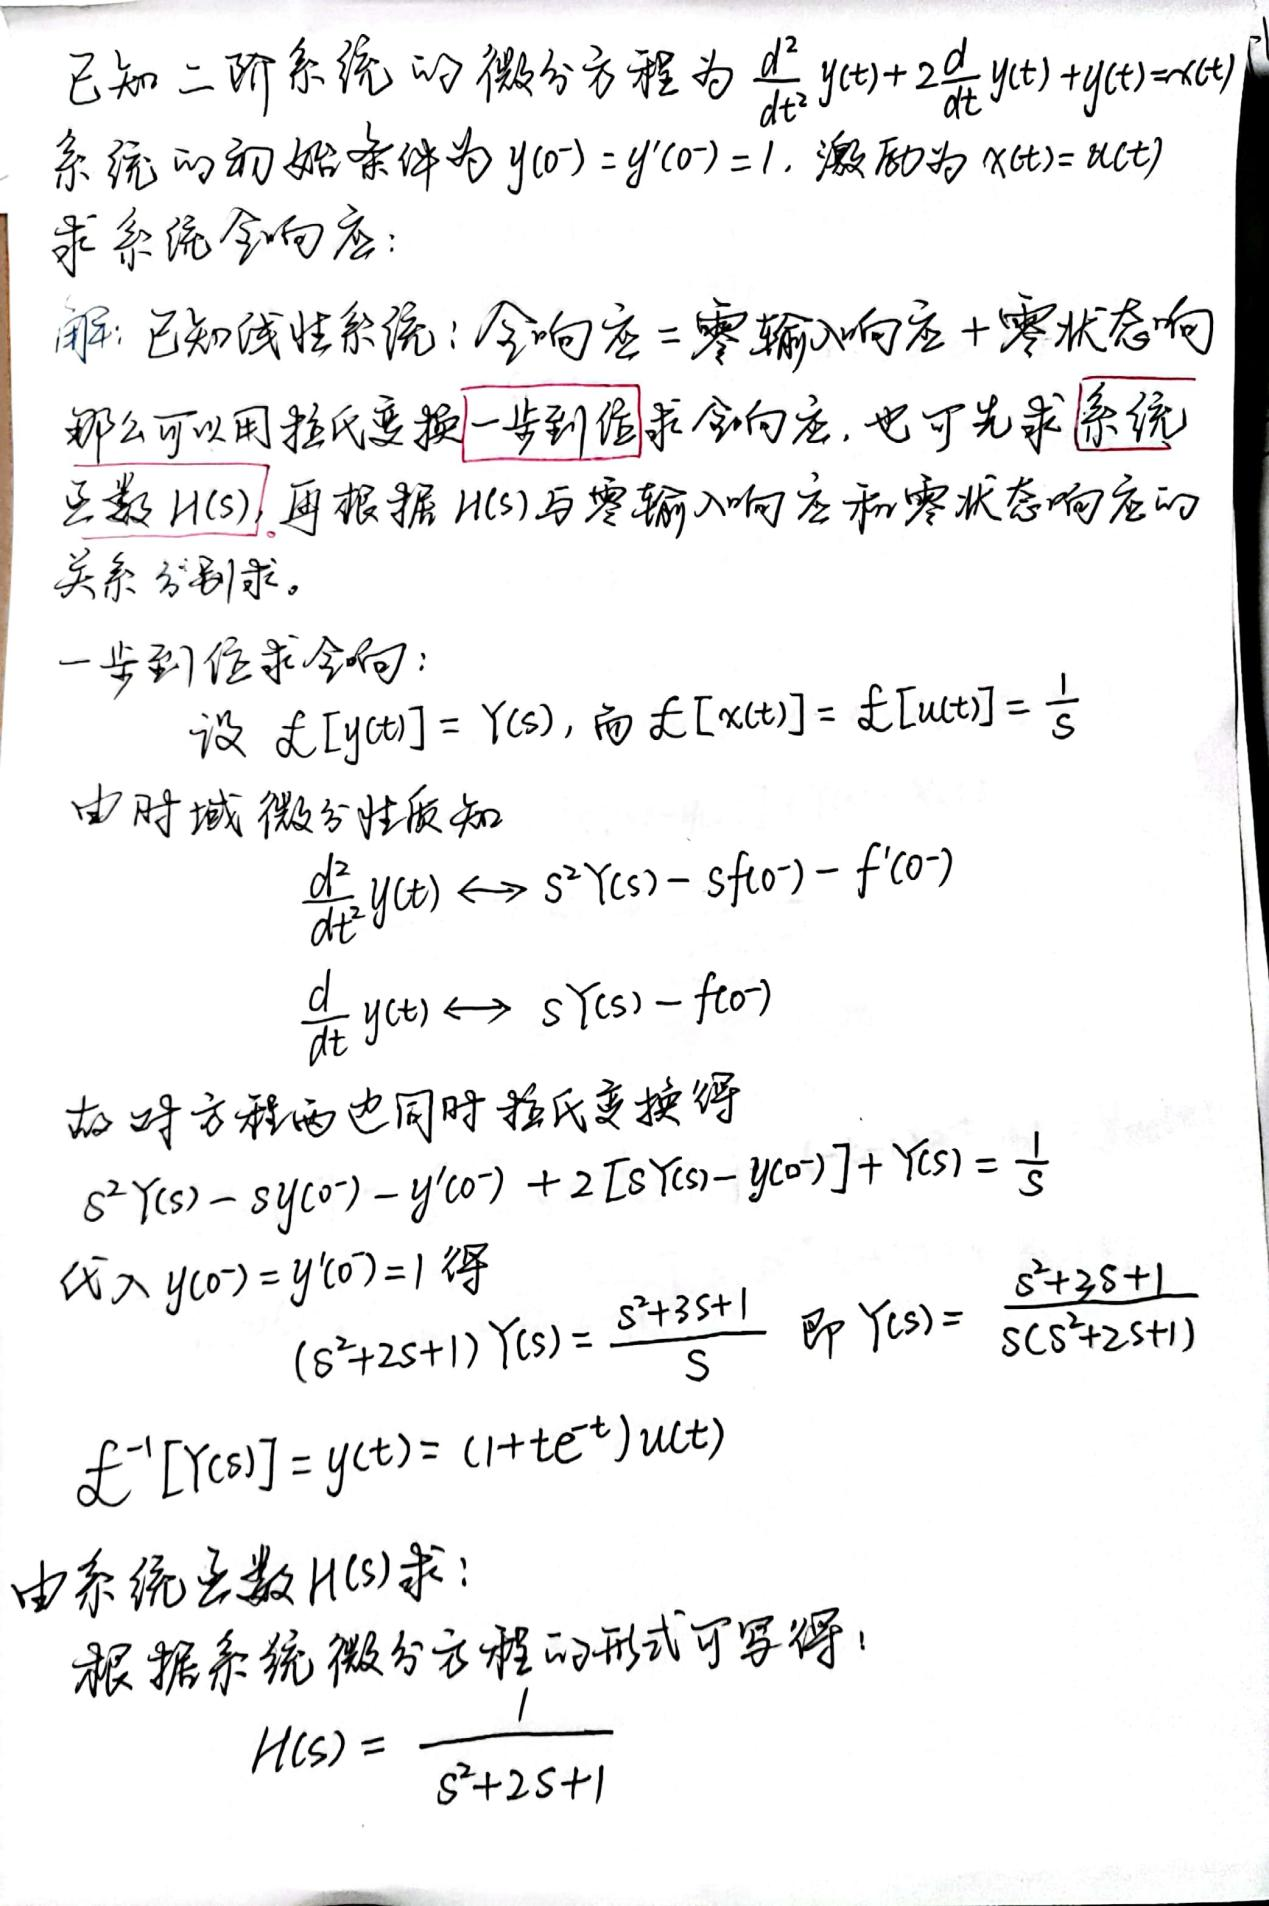 已知二阶系统的微分方程为 d²/dt² y(t)+2 d/dt y(t)+y(t)=x(t)
系统的初始条件为 y(0⁻)=y'(0⁻)=1. 激励为 x(t)=u(t)
求系统全响应:
解: 已知线性系统: 全响应=零输入响应+零状态响
那么可以用拉氏变换一步到位求全响应, 也可先求系统
函数 H(s), 再根据 H(s)与零输入响应和零状态响应的
关系分别求。
一步到位求全响:
设 £[y(t)]=Y(s), 而 £[x(t)]=£[u(t)]=1/s
由时域微分性质知
d²/dt² y(t) ↔ s²Y(s)-sf(0⁻)-f'(0⁻)
d/dt y(t) ↔ sY(s)-f(0⁻)
故对方程两边同时拉氏变换得
s²Y(s)-sy(0⁻)-y'(0⁻)+2[sY(s)-y(0⁻)]+Y(s)=1/s
代入 y(0⁻)=y'(0⁻)=1 得
(s²+2s+1)Y(s)=(s²+3s+1)/s 即 Y(s)=(s²+3s+1)/(s(s²+2s+1))
£⁻¹[Y(s)]=y(t)=(1+te⁻ᵗ)u(t)
由系统函数H(s)求:
根据系统微分方程的形式可写得:
H(s)=1/(s²+2s+1)